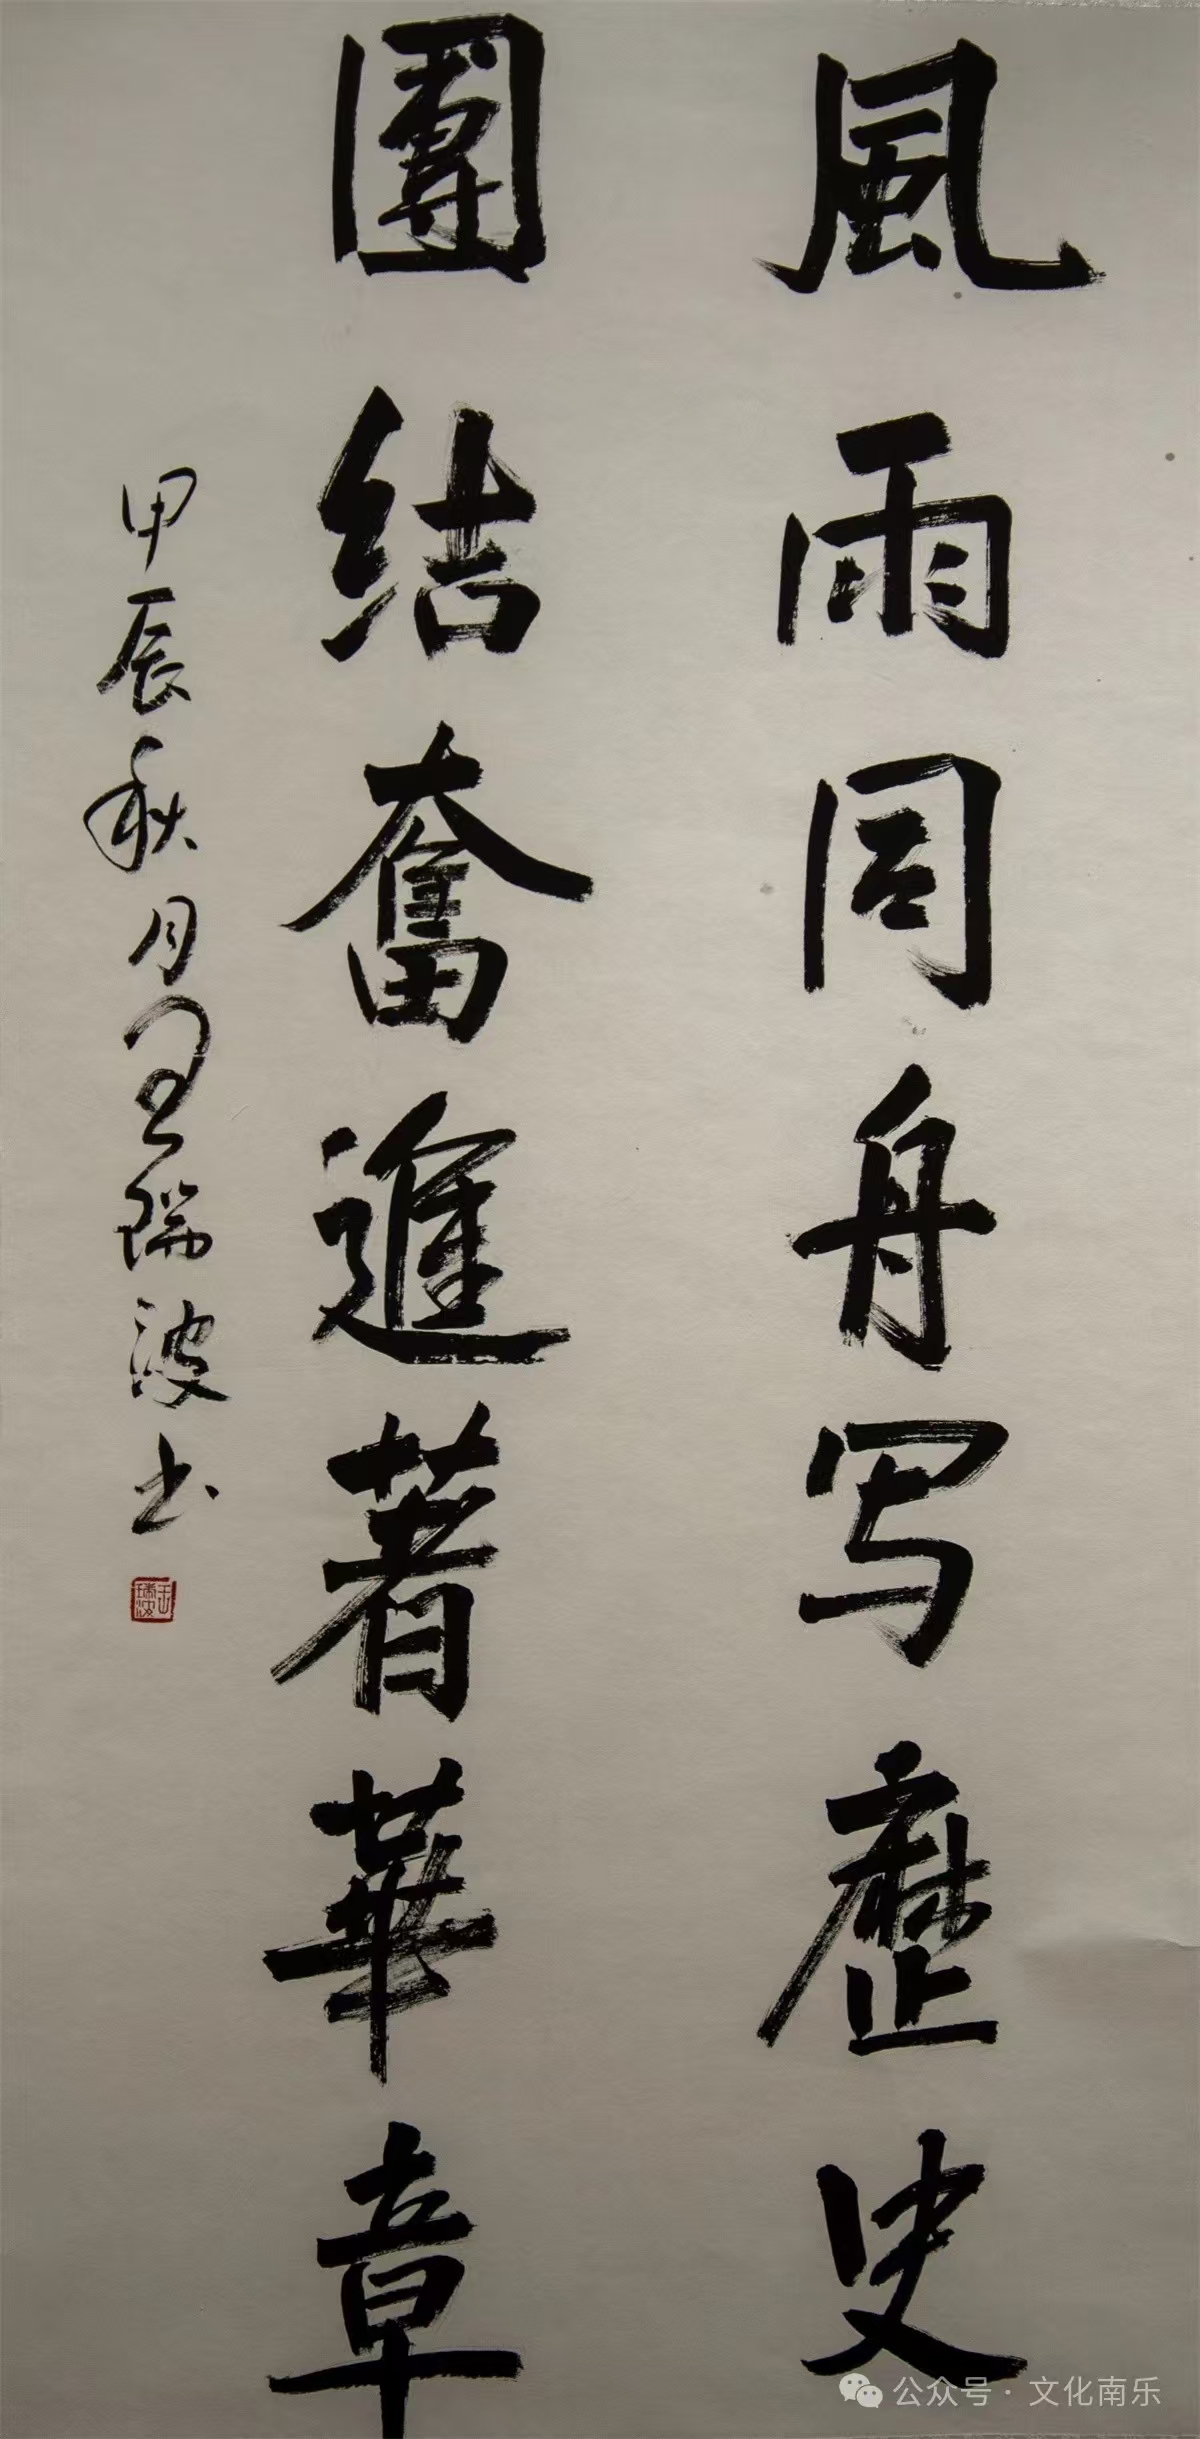 風雨同舟写歷史
團結奮進著華章
甲辰秋月王瑞波书
王瑞波
公众号·文化南乐